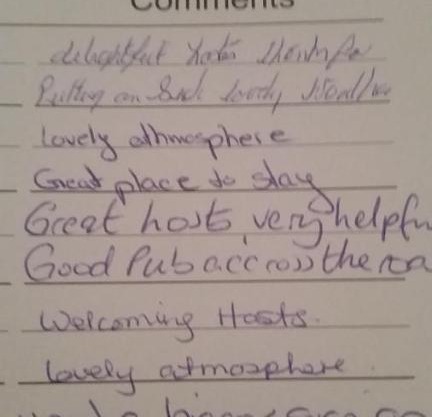 Comments
delightful hosts thanks for
Putting on such lovely
Lovely athmosphere
Great place to stay
Great hosts, very helpfu
Good Pub accross the roa
Welcoming Hosts.
Lovely atmosphere